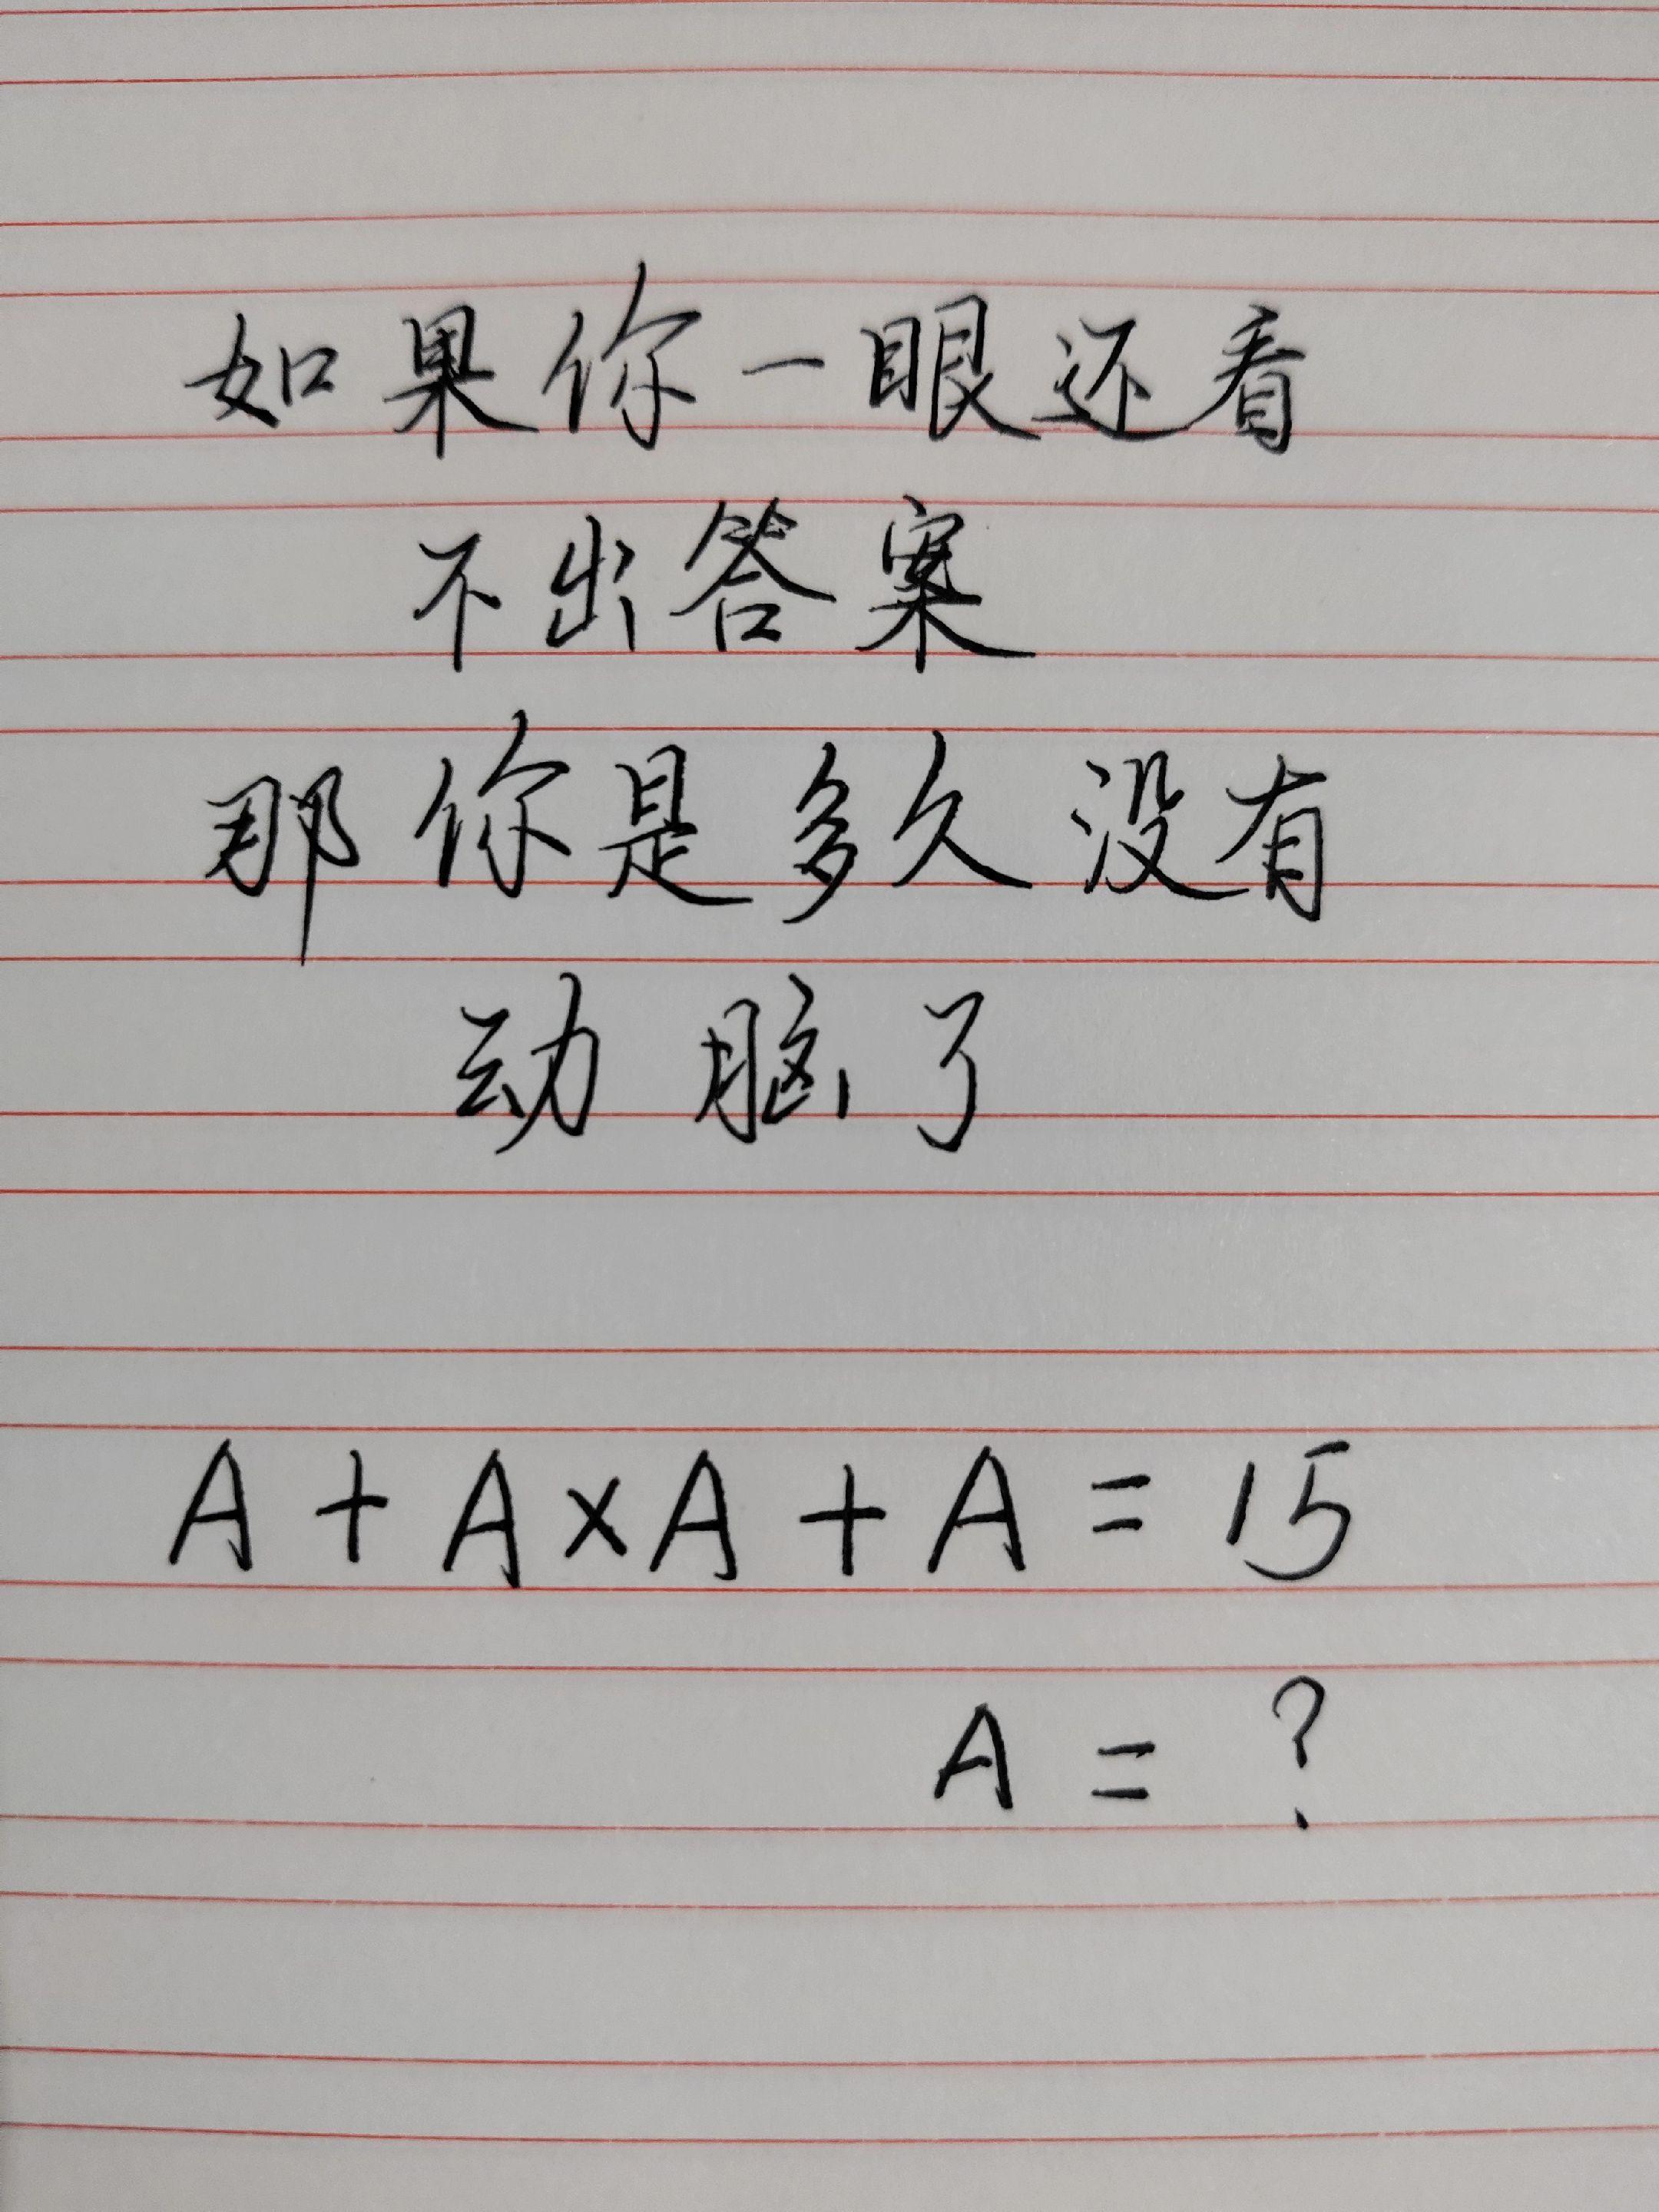 如果你一眼还看
不出答案
那你是多久没有
动脑了
A + A × A + A = 15
A = ?